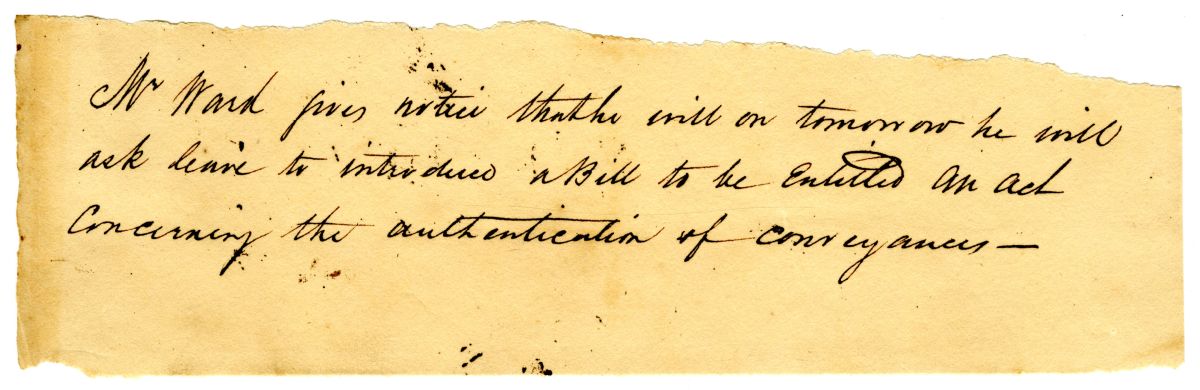 Mr Ward gives notice that he will on tomorrow he will
ask leave to introduce a Bill to be Entitled An Act
Concerning the authentication of conveyances—